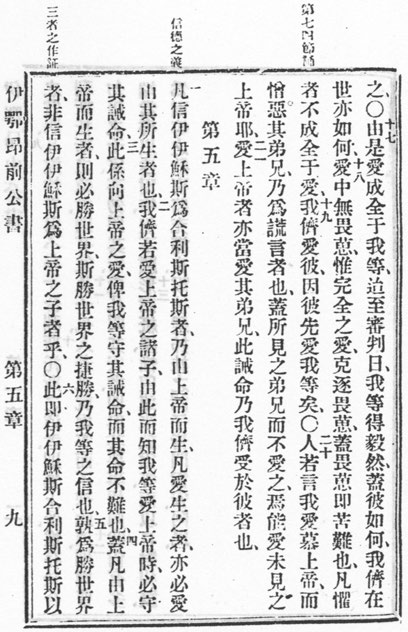 信德之義
三者之作証
十七
之、〇由是愛成全于我等、迨至審判日、我等得毅然、蓋彼如何、我儕在
十八
世亦如何、愛中無畏葸、惟完全之愛、克逐畏葸、蓋畏葸即苦難也、凡懼
十九 二十
者不成全于愛、我儕愛彼、因彼先愛我等矣、〇人若言我愛慕上帝、而
憎惡其弟兄、乃爲謊言者也、蓋所見之弟兄而不愛之、焉能愛未見之
二一
上帝耶、愛上帝者亦當愛其弟兄、此誡命乃我儕受於彼者也、
第五章
一
凡信伊伊穌斯爲合利斯托斯者、乃由上帝而生、凡愛生之者、亦必愛
二
由其所生者也、我儕若愛上帝之諸子、由此而知我等愛上帝時、必守
三 四
其誡命、此係向上帝之愛、俾我等守其誡命、而其命不難也、蓋凡由上
五
帝而生者、則必勝世界、斯勝世界之捷勝、乃我等之信也、孰爲勝世界
六
者、非信伊伊穌斯爲上帝之子者乎、〇此即伊伊穌斯合利斯托斯以
伊鄂昂前公書 第五章 九